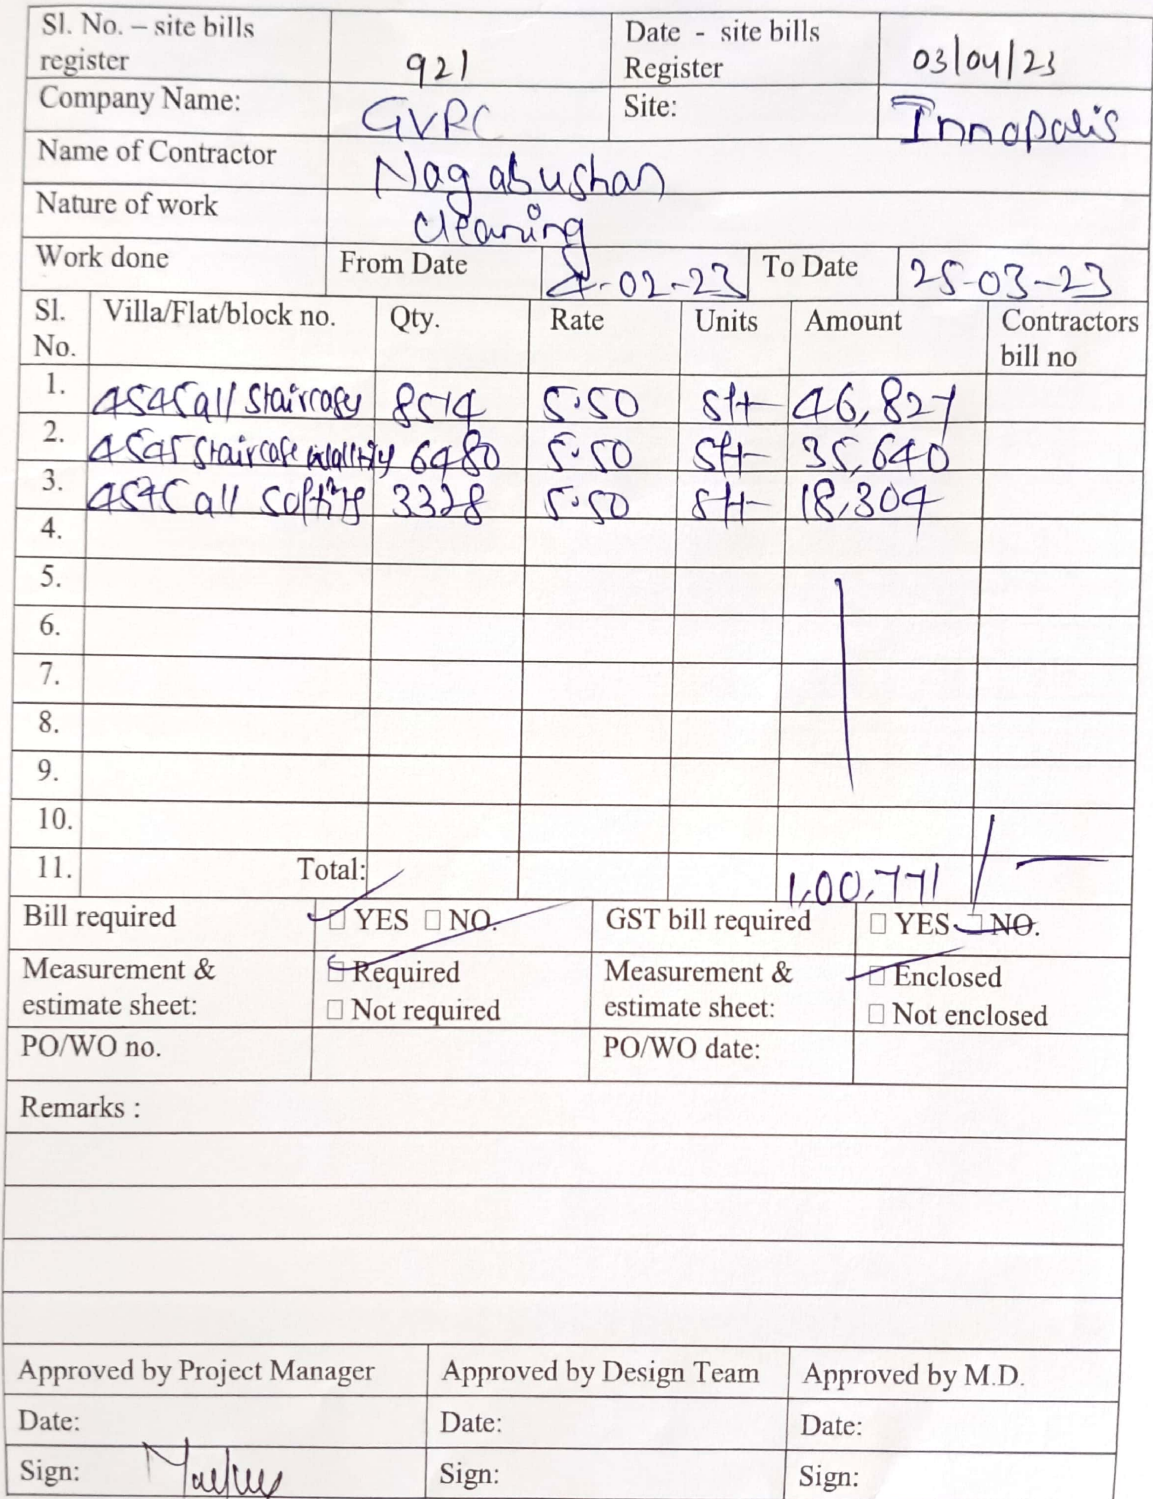 Sl. No. – site bills register 921 Date - site bills Register 03/04/23
Company Name: GVRC Site: Innopolis
Name of Contractor Nagabushan
Nature of work cleaning
Work done From Date -02-23 To Date 25-03-23
Sl. No. Villa/Flat/block no. Qty. Rate Units Amount Contractors bill no
1. 4545 all Staircases 8514 5.50 sft 46,827
2. 4545 Staircase 6480 5.50 sft 35,640
3. 4545 all 3328 5.50 sft 18,304
4.
5.
6.
7.
8.
9.
10.
11. Total: 1,00,771
Bill required □ YES □ NO. GST bill required □ YES □ NO.
Measurement & estimate sheet: □ Required Measurement & estimate sheet: □ Enclosed
□ Not required □ Not enclosed
PO/WO no. PO/WO date:
Remarks :
Approved by Project Manager Approved by Design Team Approved by M.D.
Date: Date: Date:
Sign: Sign: Sign: